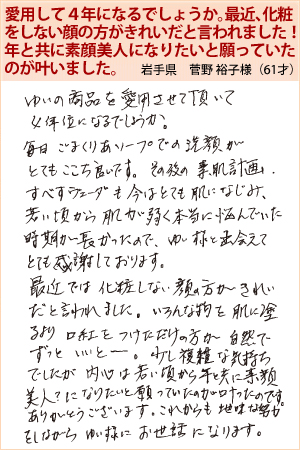 愛用して４年になるでしょうか。最近、化粧
をしない顔の方がきれいだと言われました！
年と共に素顔美人になりたいと願っていた
のが叶いました。 岩手県 菅野 裕子様（61才）
ゆいの商品を愛用させて頂いて
4年位になるでしょうか。
毎日ごまくりあソープでの洗顔が
とてもここち良いです。その後の素肌計画、
すべすべウェーダーも今はとても肌になじみ、
若い頃から肌が弱く本当に悩んでいた
時期が長かったので、ゆい様と出会えて
とても感謝しております。
最近では化粧しない顔の方がきれい
だと言われました。いろんな物を肌に塗
るより口紅をつけただけの方が自然で
ずっといいと―。少し複雑な気持ち
でしたが内心は若い頃から年と共に素顔
美人?になりたいと願っていたのが叶ったのです。
ありがとうございます。これからも地味な努力
をしながらゆい様にお世話になります。